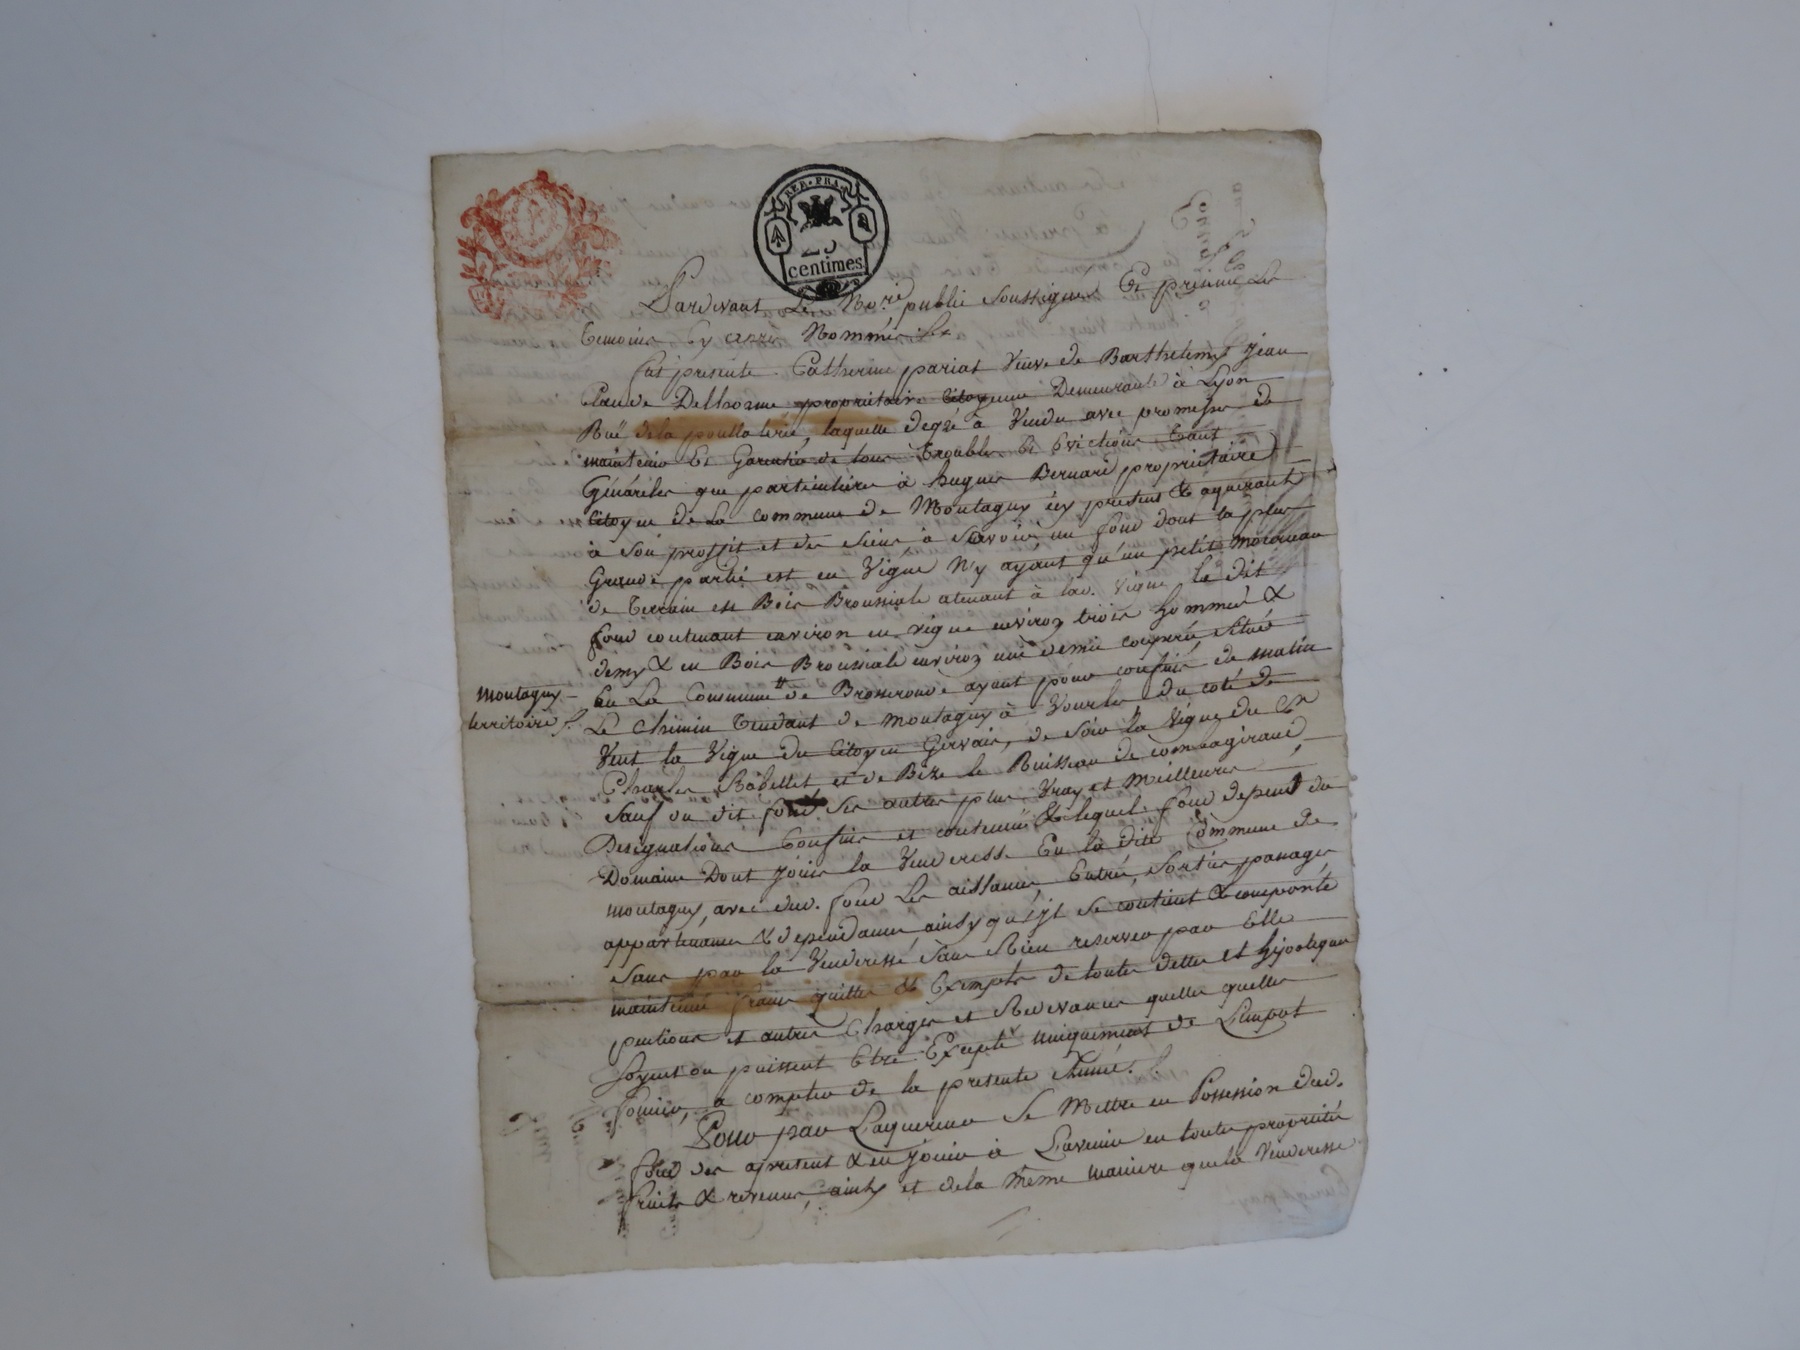 REP. FRA.
25
centimes
Pardevant Le No.re public soussigné Et présence des
témoins Cy après Nommés
fut presente Catherine pariat Veuve de Barthelemy Jean
Claude Delhorme propriétaire Citoyenne Demeurante à Lyon
Ruë de la poullalerie, laquelle degré à Vendu avec promesse de
maintenir Et Garentir de tous Troubles Et Evictions tant
Générales que particulières à hugues Bernard propriétaire
Citoyen de La Commune de Montagny icy présent & aquérant
à son proffit et des siens à Savoir un fond dont la plus
Grande partie est en Vigne N'y ayant qu'un petit morceau
de Terrain en Bois Broussiale atenant à lad. Vigne le dit
fond contenant environ en vigne environ trois hommées &
demy & en Bois Broussiale environ une demie couppée, situé
En La Commune de ayant pour confins de matin
Montagny
territoire
Le Chemin tendant de Montagny à Vourles du coté de
Vent la Vigne du Citoyen Gervais, de Soir la Vigne du Cn
Charles et de Bize le Ruisseau de
Sauf du dit fond Ses autres plus Vray et Meilleures
Designations Confins et contenue & lequel fond depend du
Domaine Dont jouis la Venderesse En la dite Commune de
Montagny, avec dud. fond Les aissances, Entrés, Sorties, passages
appartenances & dependances, ainsy qu'il se contient & comporte
sans par la Venderesse Sans Rien reserver par Elle
maintenu franc quitte & Exempte de toutes dettes et hypoteques
pentions et autres Charges et Redevances quelles quelles
soyent ou puissent Etre Excepté uniquement de L'impot
foncier, à compter de la presente Année.
Pour par L'aquereur Se Mettre en Possession dud.
fond des apresent & en Jouir à L'avenir en toute propriété
fruits & revenus, ainsy et de la Même maniere que la Venderesse